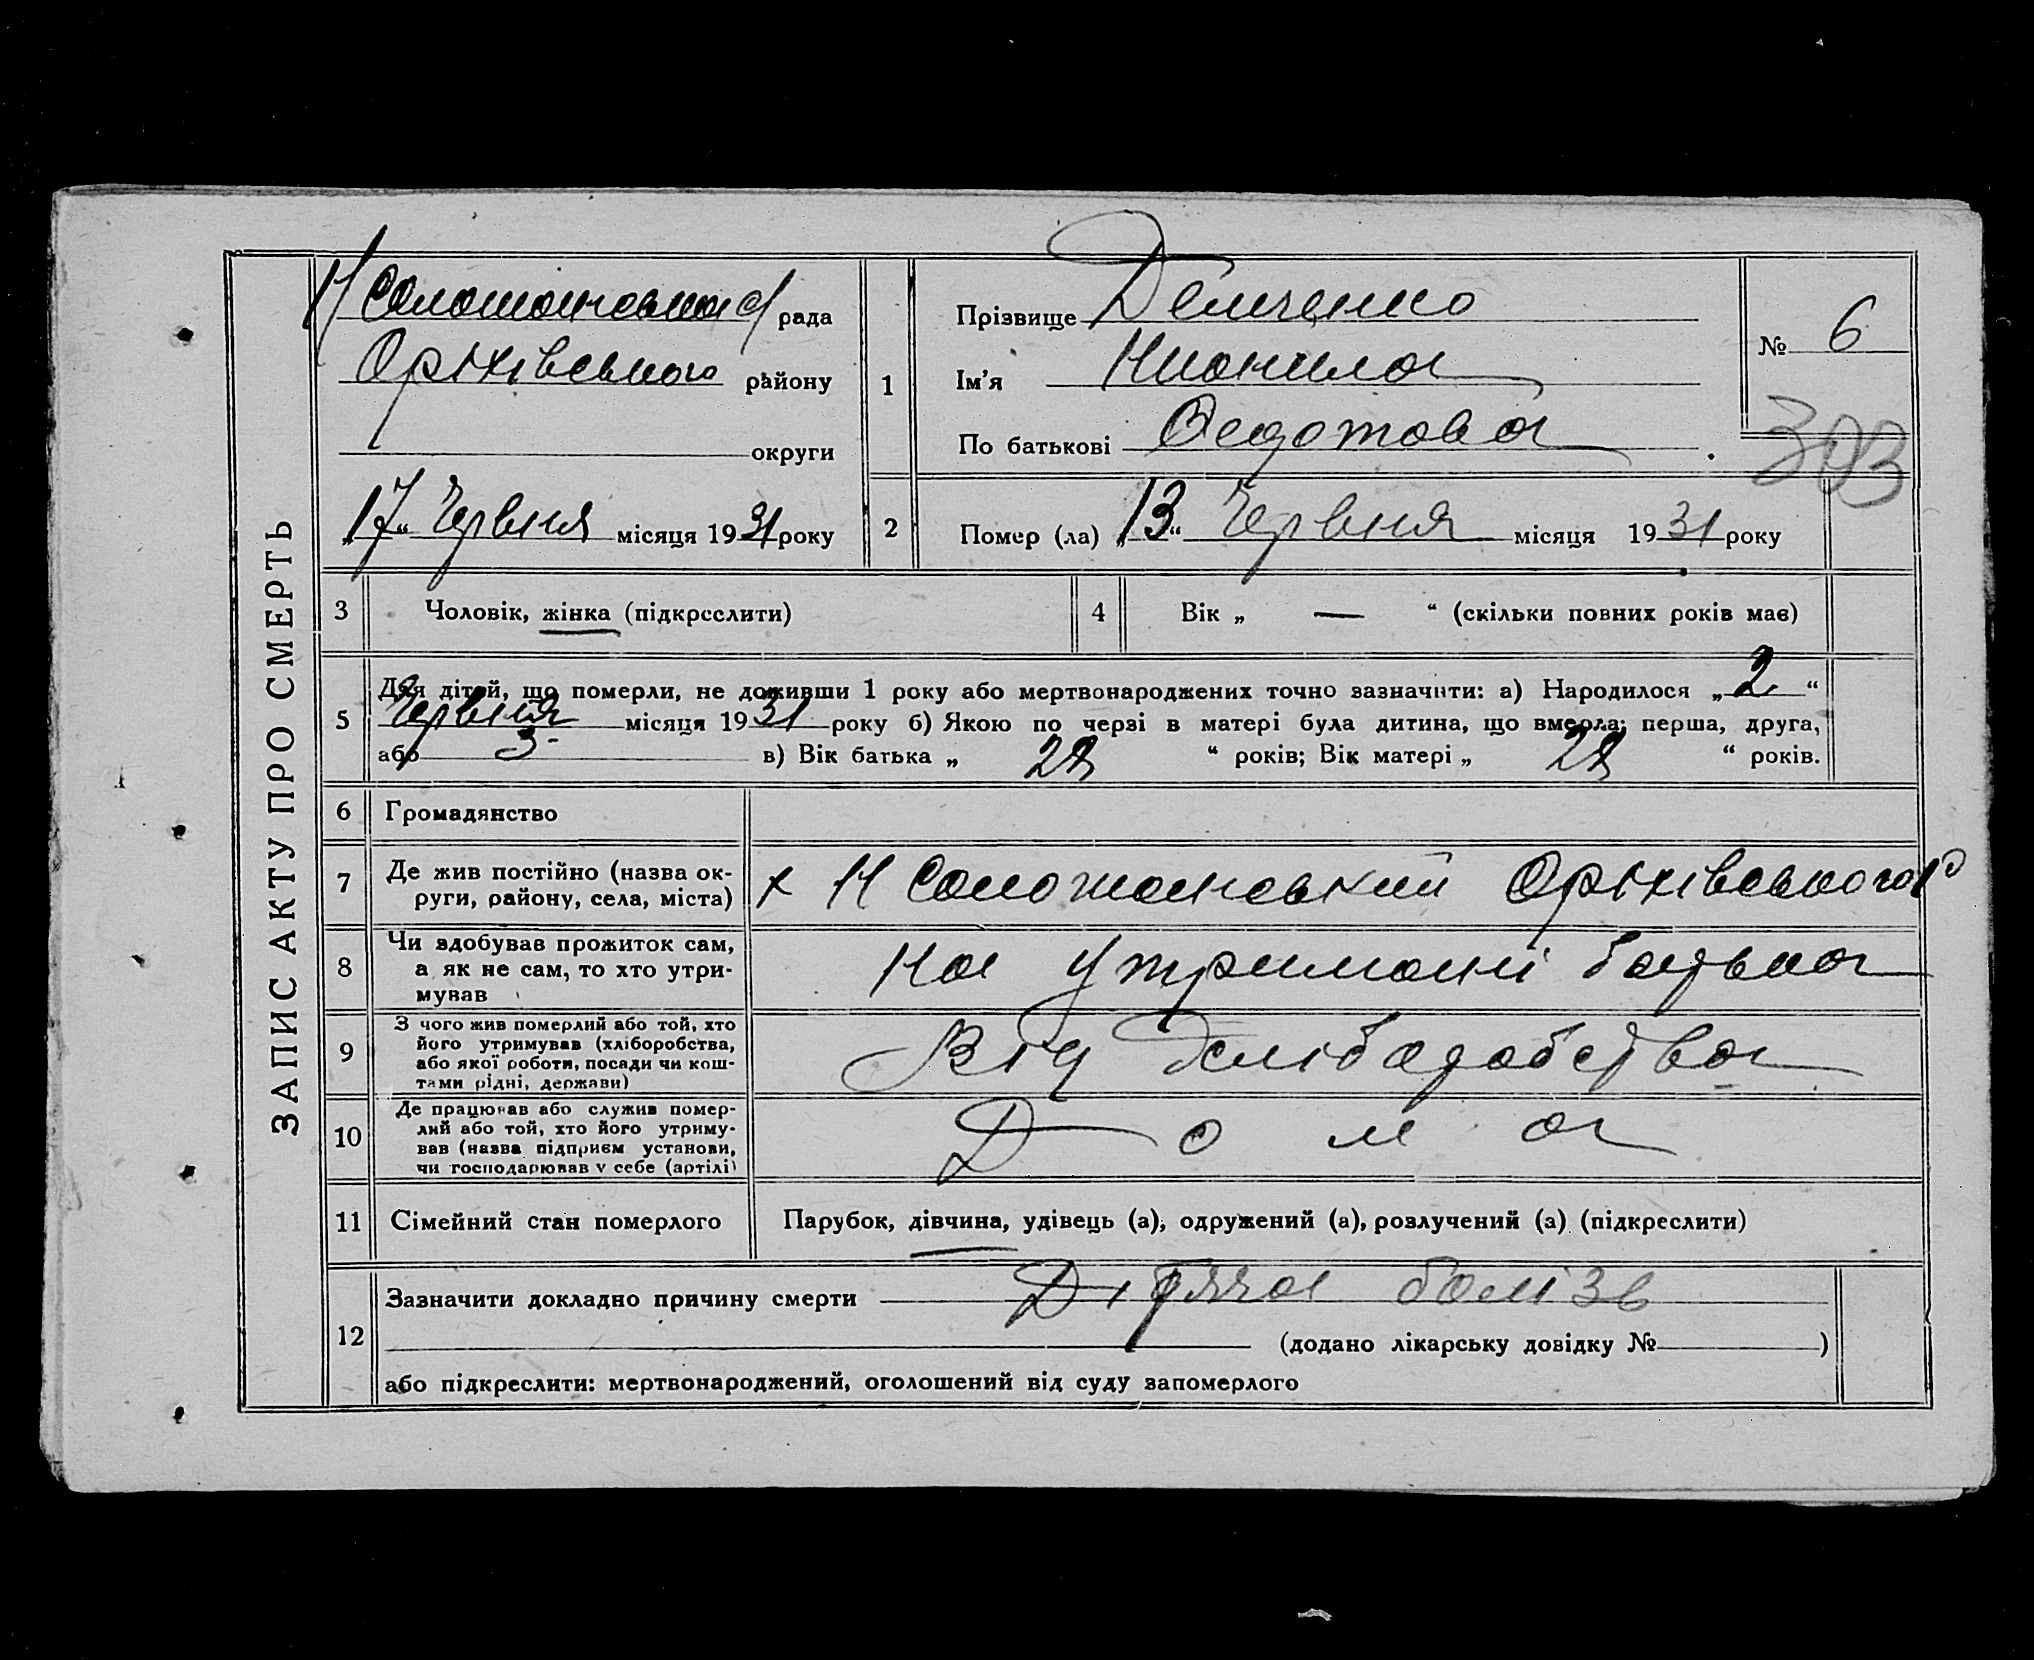 ЗАПИС АКТУ ПРО СМЕРТЬ
Н Соломонська с/рада
Оріхівського району
округи
„17“ Червня місяця 1931 року
1
Прізвище Демченко
Ім’я Нионила
По батькові Федотова
№ 6
393
2
Помер (ла) „13“ Червня місяця 1931 року
3 Чоловік, жінка (підкреслити)
4 Вік „ — “ (скільки повних років має)
5 Для дітей, що померли, не доживши 1 року або мертвонароджених точно зазначити: а) Народилося „2“
Червня місяця 1931 року б) Якою по черзі в матері була дитина, що вмерла; перша, друга,
або 3 в) Вік батька „ 28 “ років; Вік матері „ 28 “ років.
6 Громадянство
7 Де жив постійно (назва ок-
руги, району, села, міста)
х Н Соломонський Оріхівського р
8 Чи здобував прожиток сам,
а як не сам, то хто утри-
мував
На утриманні батька
9 З чого жив померлий або той, хто
його утримував (хліборобства,
або якої роботи, посади чи кош-
тами рідні, держави)
Від хліборобства
10 Де працював або служив помер-
лий або той, хто його утриму-
вав (назва підприєм установи,
чи господарював у себе (артілі)
Дома
11 Сімейний стан померлого
Парубок, дівчина, удівець (а), одружений (а), розлучений (а) (підкреслити)
12 Зазначити докладно причину смерти Дітяча болізь
(додано лікарську довідку № )
або підкреслити: мертвонароджений, оголошений від суду запомерлого